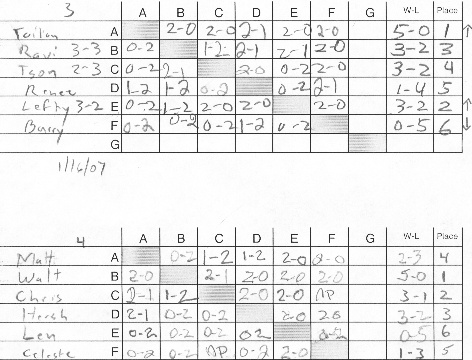 3 A B C D E F G W-L Place
A 2-0 2-0 2-1 2-0 2-0 5-0 1 ↑
Ravi 3-3 B 0-2 1-2 2-1 2-1 2-0 3-2 3
Tyson 2-3 C 0-2 2-1 2-0 0-2 2-0 3-2 4
Renee D 1-2 1-2 0-2 0-2 2-1 1-4 5
Lefty 3-2 E 0-2 1-2 2-0 2-0 2-0 3-2 2 ↑
Barry F 0-2 0-2 0-2 1-2 0-2 0-5 6 ↓
G
1/16/07
4 A B C D E F G W-L Place
Matt A 0-2 1-2 1-2 2-0 2-0 2-3 4
Walt B 2-0 2-1 2-0 2-0 2-0 5-0 1
Chris C 2-1 1-2 2-0 2-0 NP 3-1 2
D 2-1 0-2 0-2 2-0 2-0 3-2 3
Len E 0-2 0-2 0-2 0-2 0-2 0-5 6
Celeste F 0-2 0-2 NP 0-2 2-0 1-3 5